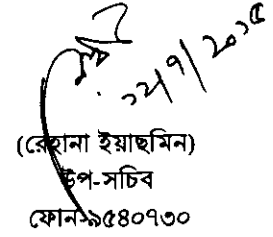 ২২/৭/২০১৫
(রেহানা ইয়াছমিন)
উপ-সচিব
ফোন-৯৫৪০৭৩০